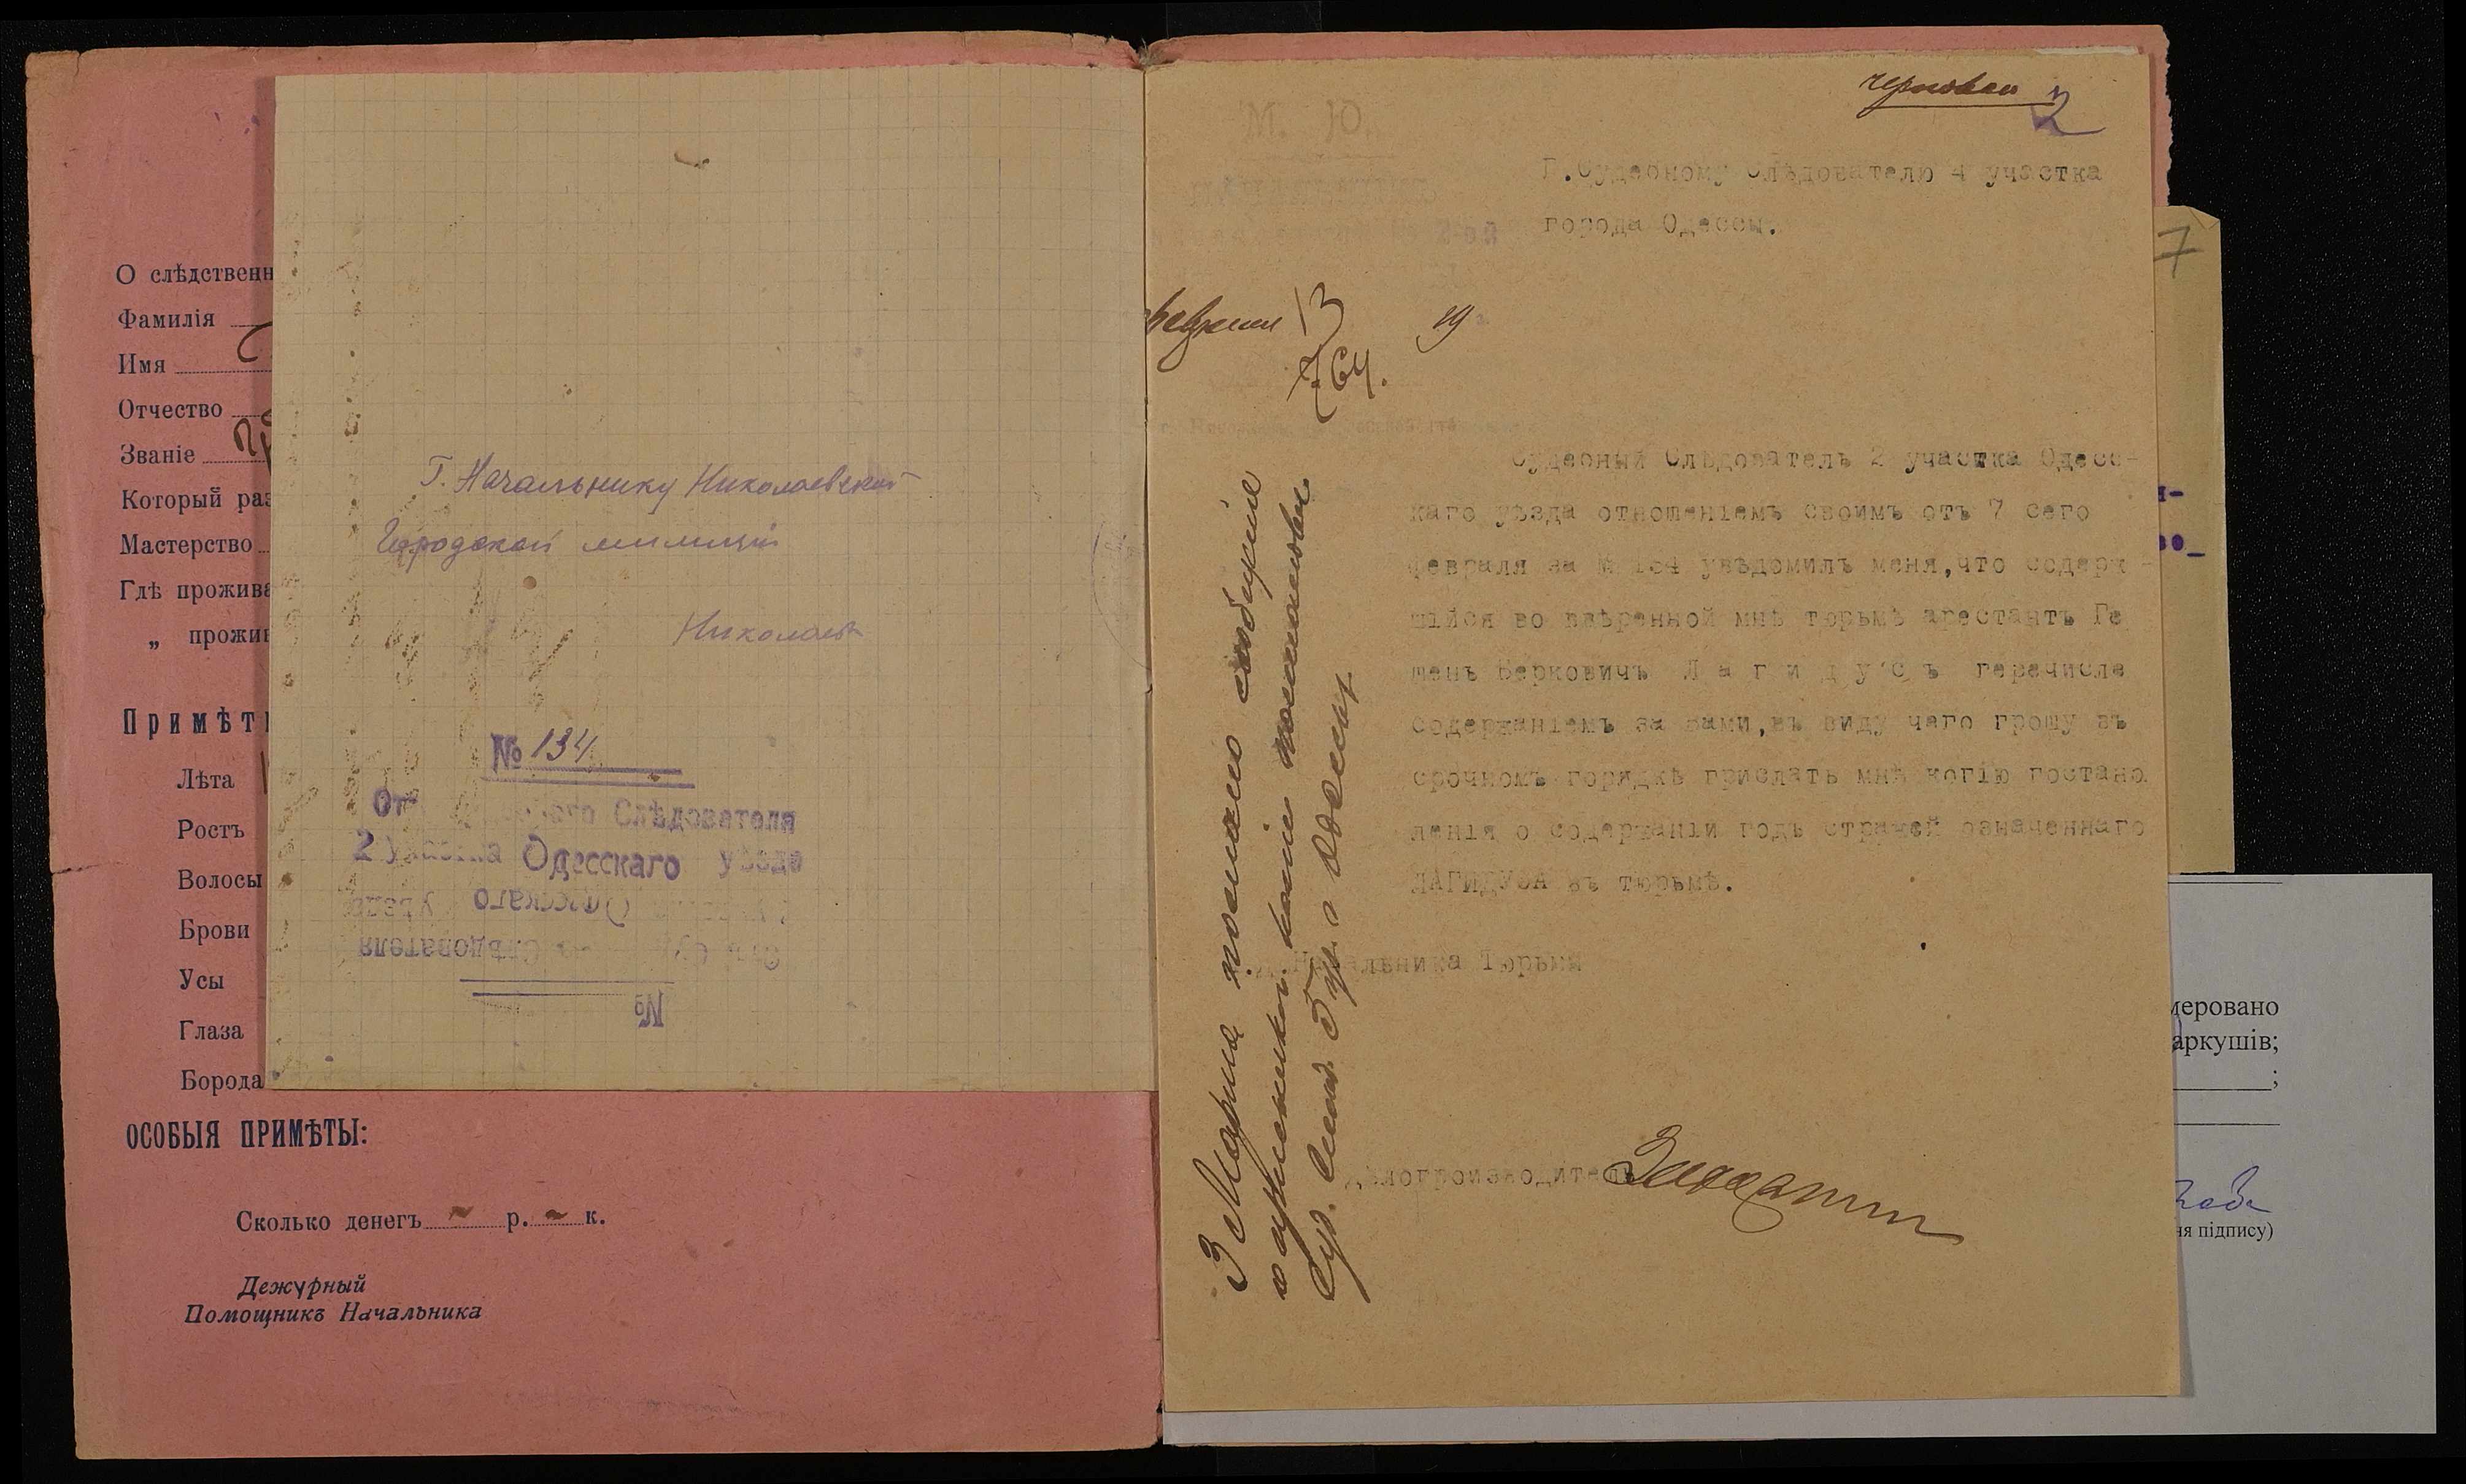 О слѣдственн
Фамилія
Имя
Отчество
Званіе
Который раз
Мастерство
Гдѣ прожива
„ прожив
Примѣты
Лѣта
Ростъ
Волосы
Брови
Усы
Глаза
Борода
ОСОБЫЯ ПРИМѢТЫ:
Сколько денегъ р. к.
Дежурный
Помощникъ Начальника
Г. Начальнику Николаевской
Городской милиціи
Николаев
№ 134
От го Слѣдователя
2 участка Одесскаго уѣзда
№
черновая
2
М. Ю.
Г.Судебному Слѣдователю 4 участка
города Одессы.
февраля 13 19
764.
Судебный Слѣдователь 2 участка Одесс-
каго уѣзда отношеніемъ своимъ отъ 7 сего
февраля за № 134 увѣдомилъ меня,что содерж-
щійся во ввѣренной мнѣ тюрьмѣ арестантъ Ге
шенъ Берковичъ Лагидусъ перечисле
содержаніемъ за вами,въ виду чего прошу въ
срочномъ порядкѣ прислать мнѣ копію постано
ленія о содержаніи подъ стражей означеннаго
ЛАГИДУСА въ тюрьмѣ.
Начальника Тюрьмы
Дѣлопроизводитель
3 Марта послано сообщеніе
о арестант. копіи постановл.
Суд. Слѣд. 5 уч. г. Одессы
7
меровано
аркушів;
ня підпису)